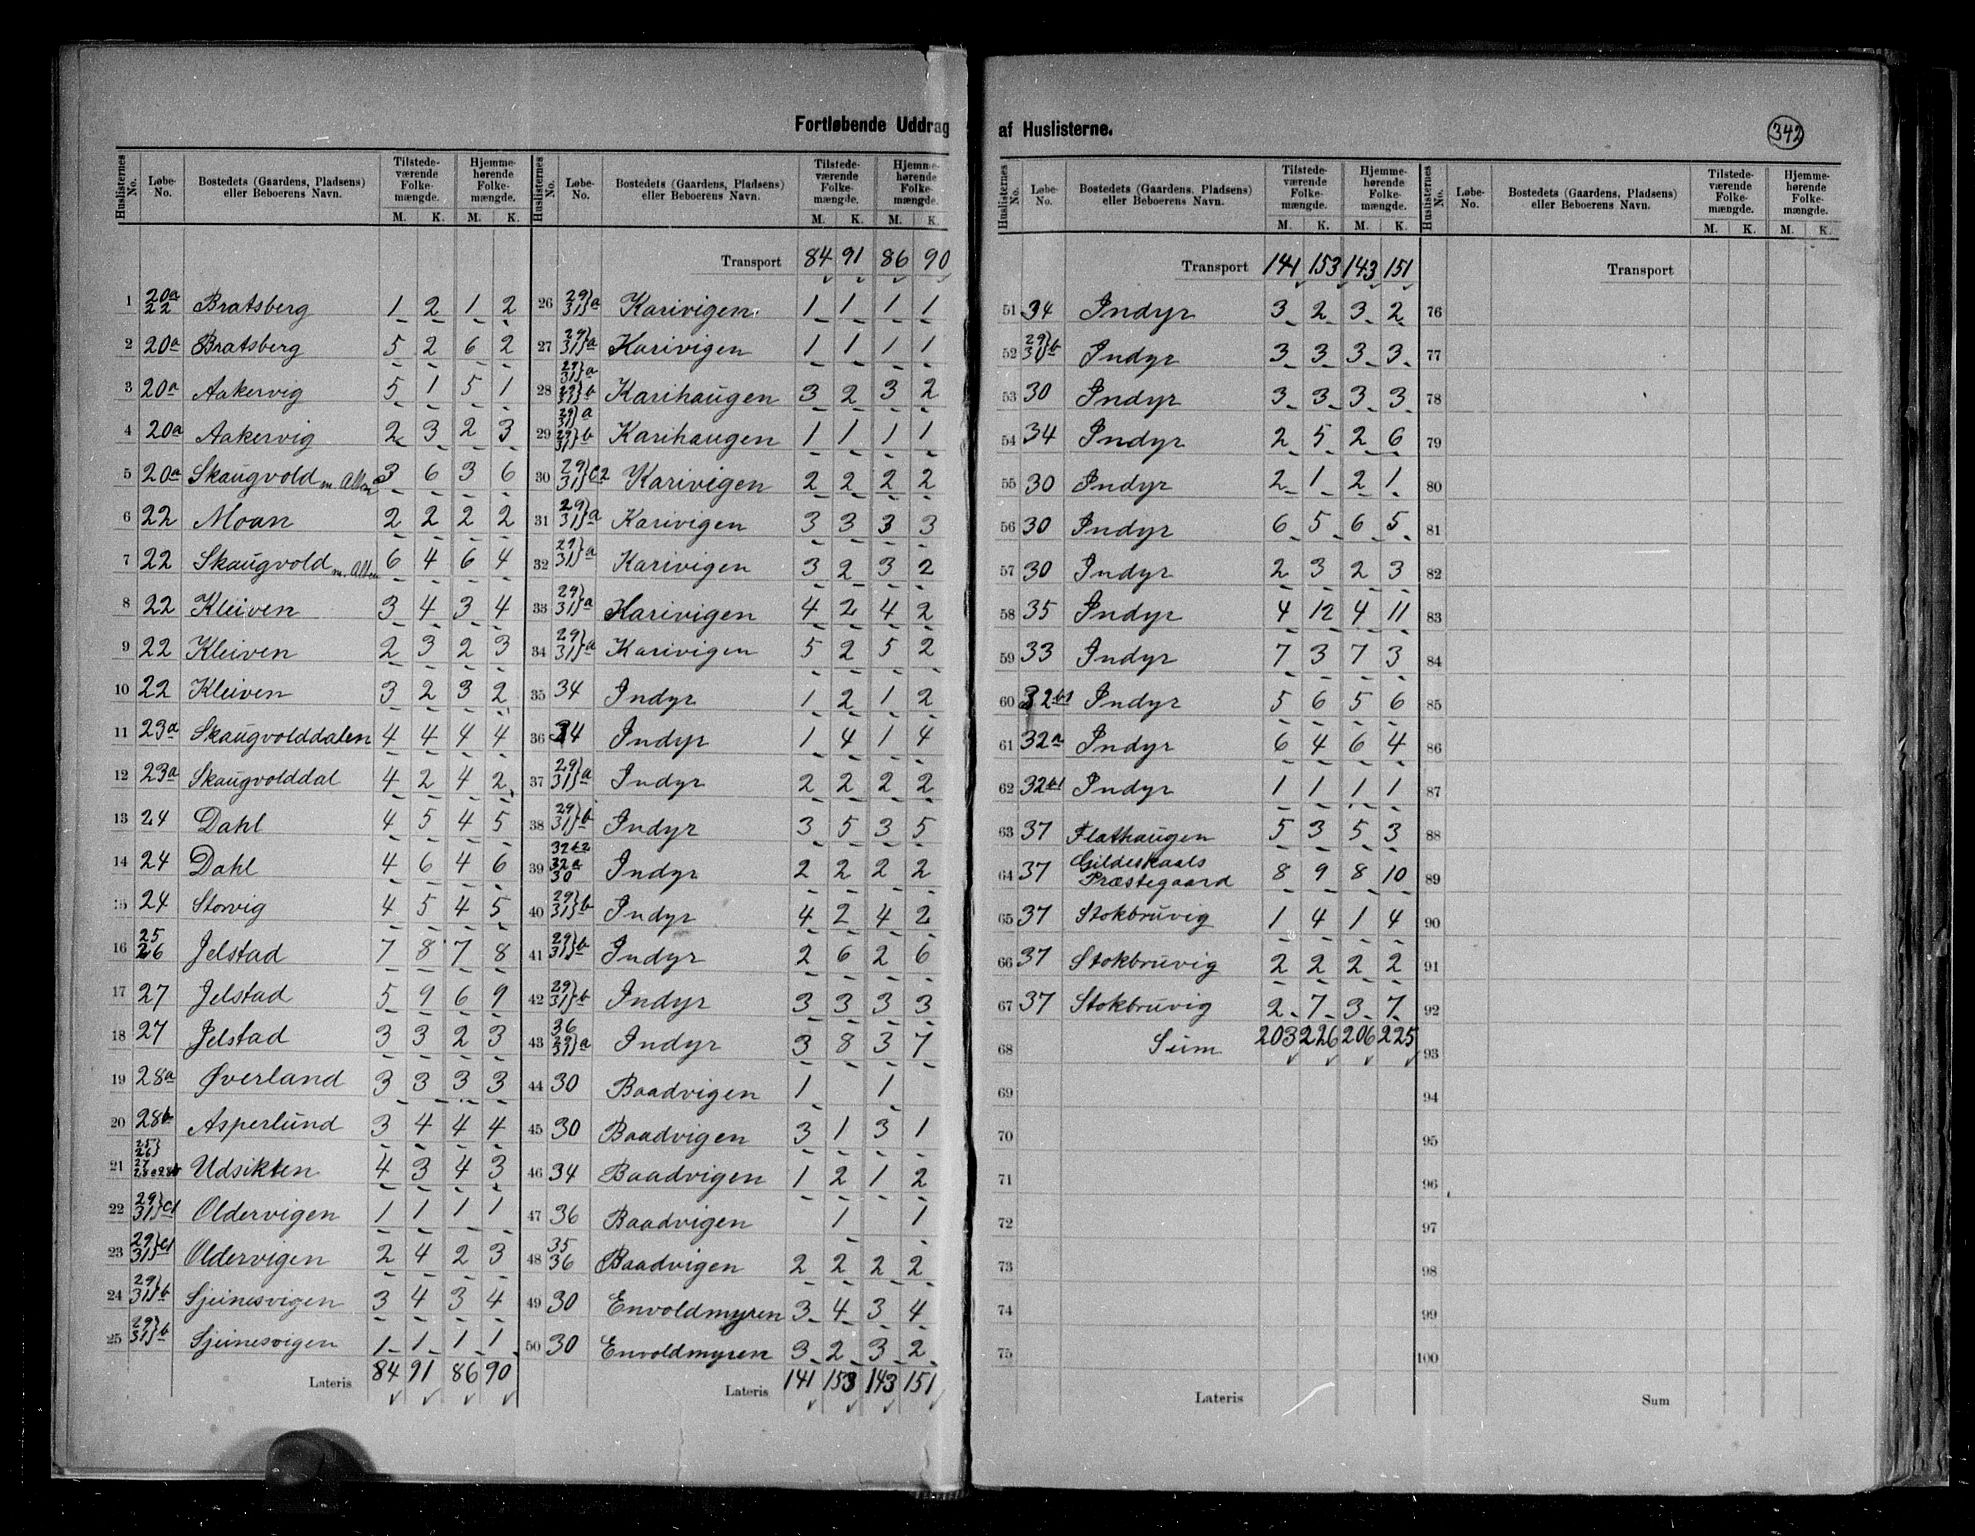 Fortløbende Uddrag af Huslisterne.
342
Huslisternes No. | Løbe-No. | Bostedets (Gaardens, Pladsens) eller Beboerens Navn. | Tilstedeværende Folkemængde. M. K. | Hjemmehørende Folkemængde. M. K.
1 20a 22 Bratsberg 1 2 1 2
2 20a Bratsberg 5 2 6 2
3 20a Aakervig 5 1 5 1
4 20a Aakervig 2 3 2 3
5 20a Skaugvold 3 6 3 6
6 22 Moan 2 2 2 2
7 22 Skaugvold 6 4 6 4
8 22 Kleiven 3 4 3 4
9 22 Kleiven 2 3 2 3
10 22 Kleiven 3 2 3 2
11 23a Skaugvolddalen 4 4 4 4
12 23a Skaugvolddal 4 2 4 2
13 24 Dahl 4 5 4 5
14 24 Dahl 4 6 4 6
15 24 Storvig 4 5 4 5
16 25 26 Jelstad 7 8 7 8
17 27 Jelstad 5 9 6 9
18 27 Jelstad 3 3 2 3
19 28a Øverland 3 3 3 3
20 28b Asperlund 3 4 4 4
21 25 26 27 28a 28b Udsikten 4 3 4 3
22 29 31}c1 Oldervigen 1 1 1 1
23 29 31}c1 Oldervigen 2 4 2 3
24 29 31}b Sjeinesvigen 3 4 3 4
25 29 31}b Sjeinesvigen 1 1 1 1
Lateris 84 91 86 90
Huslisternes No. | Løbe-No. | Bostedets (Gaardens, Pladsens) eller Beboerens Navn. | Tilstedeværende Folkemængde. M. K. | Hjemmehørende Folkemængde. M. K.
Transport 84 91 86 90
26 29 31}a Karivigen 1 1 1 1
27 29 31}a Karivigen 1 1 1 1
28 29 31}a 29 31}b Karihaugen 3 2 3 2
29 29 31}a 29 31}b Karihaugen 1 1 1 1
30 29 31}c2 Karivigen 2 2 2 2
31 29 31}a Karivigen 3 3 3 3
32 29 31}a Karivigen 3 2 3 2
33 29 31}a Karivigen 4 2 4 2
34 29 31}a Karivigen 5 2 5 2
35 34 Indyr 1 2 1 2
36 34 Indyr 1 4 1 4
37 29 31}a Indyr 2 2 2 2
38 29 31}b Indyr 3 5 3 5
39 32b2 32a 30 Indyr 2 2 2 2
40 29 31}b Indyr 4 2 4 2
41 29 31}b Indyr 2 6 2 6
42 29 31}b Indyr 3 3 3 3
43 36 29 31}a Indyr 3 8 3 7
44 30 Baadvigen 1 1
45 30 Baadvigen 3 1 3 1
46 34 Baadvigen 1 2 1 2
47 36 Baadvigen 1 1
48 35 36 Baadvigen 2 2 2 2
49 30 Envoldmyren 3 4 3 4
50 30 Envoldmyren 3 2 3 2
Lateris 141 153 143 151
Huslisternes No. | Løbe-No. | Bostedets (Gaardens, Pladsens) eller Beboerens Navn. | Tilstedeværende Folkemængde. M. K. | Hjemmehørende Folkemængde. M. K.
Transport 141 153 143 151
51 34 Indyr 3 2 3 2
52 29 31}b Indyr 3 3 3 3
53 30 Indyr 3 3 3 3
54 34 Indyr 2 5 2 6
55 30 Indyr 2 1 2 1
56 30 Indyr 6 5 6 5
57 30 Indyr 2 3 2 3
58 35 Indyr 4 12 4 11
59 33 Indyr 7 3 7 3
60 32b1 Indyr 5 6 5 6
61 32a Indyr 6 4 6 4
62 32b1 Indyr 1 1 1 1
63 37 Flathaugen 5 3 5 3
64 37 Gildeskaals Præstegaard 8 9 8 10
65 37 Stokbruvig 1 4 1 4
66 37 Stokbruvig 2 2 2 2
67 37 Stokbruvig 2 7 3 7
68 Sum 203 226 206 225
69
70
71
72
73
74
75
Lateris
Huslisternes No. | Løbe-No. | Bostedets (Gaardens, Pladsens) eller Beboerens Navn. | Tilstedeværende Folkemængde. M. K. | Hjemmehørende Folkemængde. M. K.
Transport
76
77
78
79
80
81
82
83
84
85
86
87
88
89
90
91
92
93
94
95
96
97
98
99
100
Sum